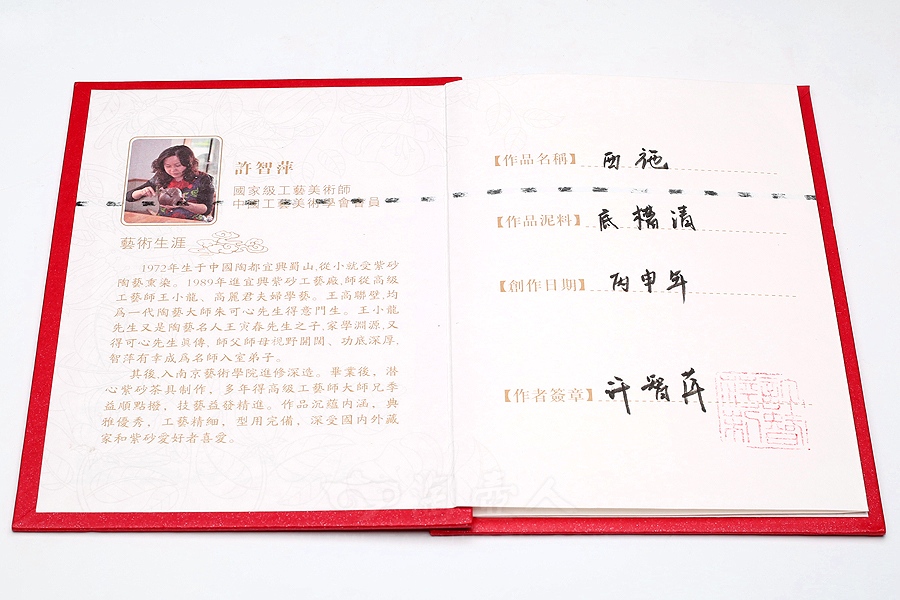 許智萍
國家級工藝美術師
中國工藝美術學會會員
藝術生涯
1972年生于中國陶都宜興蜀山,從小就受紫砂
陶藝熏染。1989年進宜興紫砂工藝廠,師從高級
工藝師王小龍、高麗君夫婦學藝。王高聯壁,均
爲一代陶藝大師朱可心先生得意門生。王小龍
先生又是陶藝名人王寅春先生之子,家學淵源,又
得可心先生眞傳,師父師母視野開闊、功底深厚,
智萍有幸成爲名師入室弟子。
其後,入南京藝術學院進修深造。畢業後,潜
心紫砂茶具制作,多年得高級工藝師大師兄季
益順點撥,技藝益發精進。作品沉蕴内涵,典
雅優秀,工藝精細,型用完備,深受國内外藏
家和紫砂愛好者喜愛。
【作品名稱】西施
【作品泥料】底槽清
【創作日期】丙申年
【作者簽章】许智萍